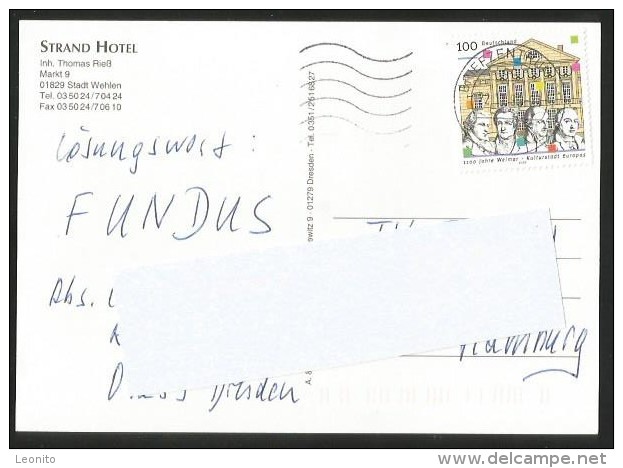 STRAND HOTEL
Inh. Thomas Rieß
Markt 9
01829 Stadt Wehlen
Tel. 03 50 24 / 7 04 24
Fax 03 50 24 / 7 06 10
Lösungswort:
FUNDUS
Abs.
Dresden
witz 9 · 01279 Dresden · Tel. 0351/2516827
100 Deutschland
1100 Jahre Weimar · Kulturstadt Europas
Hamburg
Leonito
www.delcampe.net